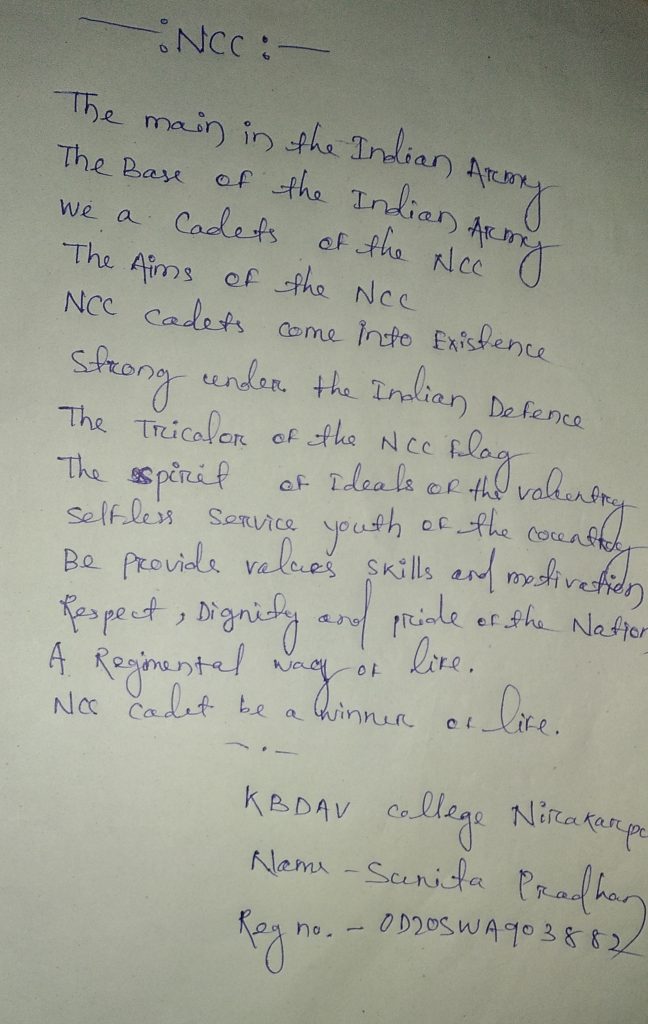 —: NCC :—
The main in the Indian Army
The Base of the Indian Army
We a Cadets of the NCC
The Aims of the NCC
NCC Cadets come into Existence
Strong under the Indian Defence
The Tricolor of the NCC flag
The spirit of Ideals of the voluentry
Selfless Service youth of the country
Be provide values skills and motivation
Respect, Dignity and pride of the Nation
A Regimental way of life.
NCC Cadet be a winner of life.
KBDAV College Nirakarpo
Name - Sunita Pradhan
Reg no. - OD20SWA903882